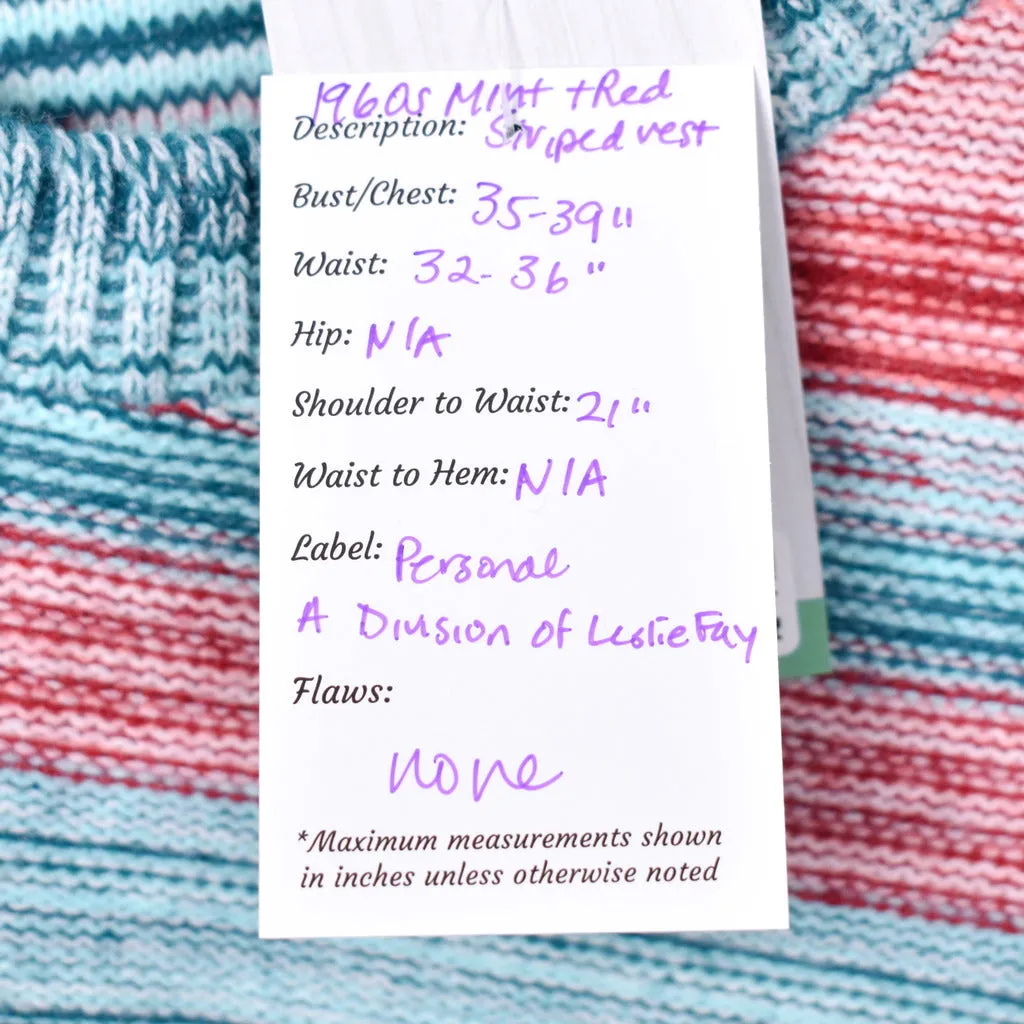 1960s Mint + Red
Description: Striped vest
Bust/Chest: 35-39"
Waist: 32-36"
Hip: N/A
Shoulder to Waist: 21"
Waist to Hem: N/A
Label: Personal
A Division of Leslie Fay
Flaws:
none
*Maximum measurements shown
in inches unless otherwise noted